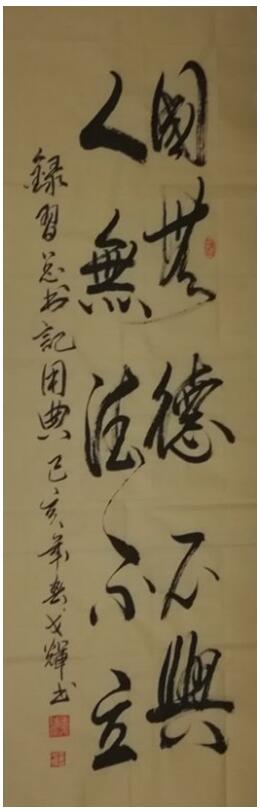 國無德不興
人無德不立
錄習总书記用典 己亥年春戈輝书